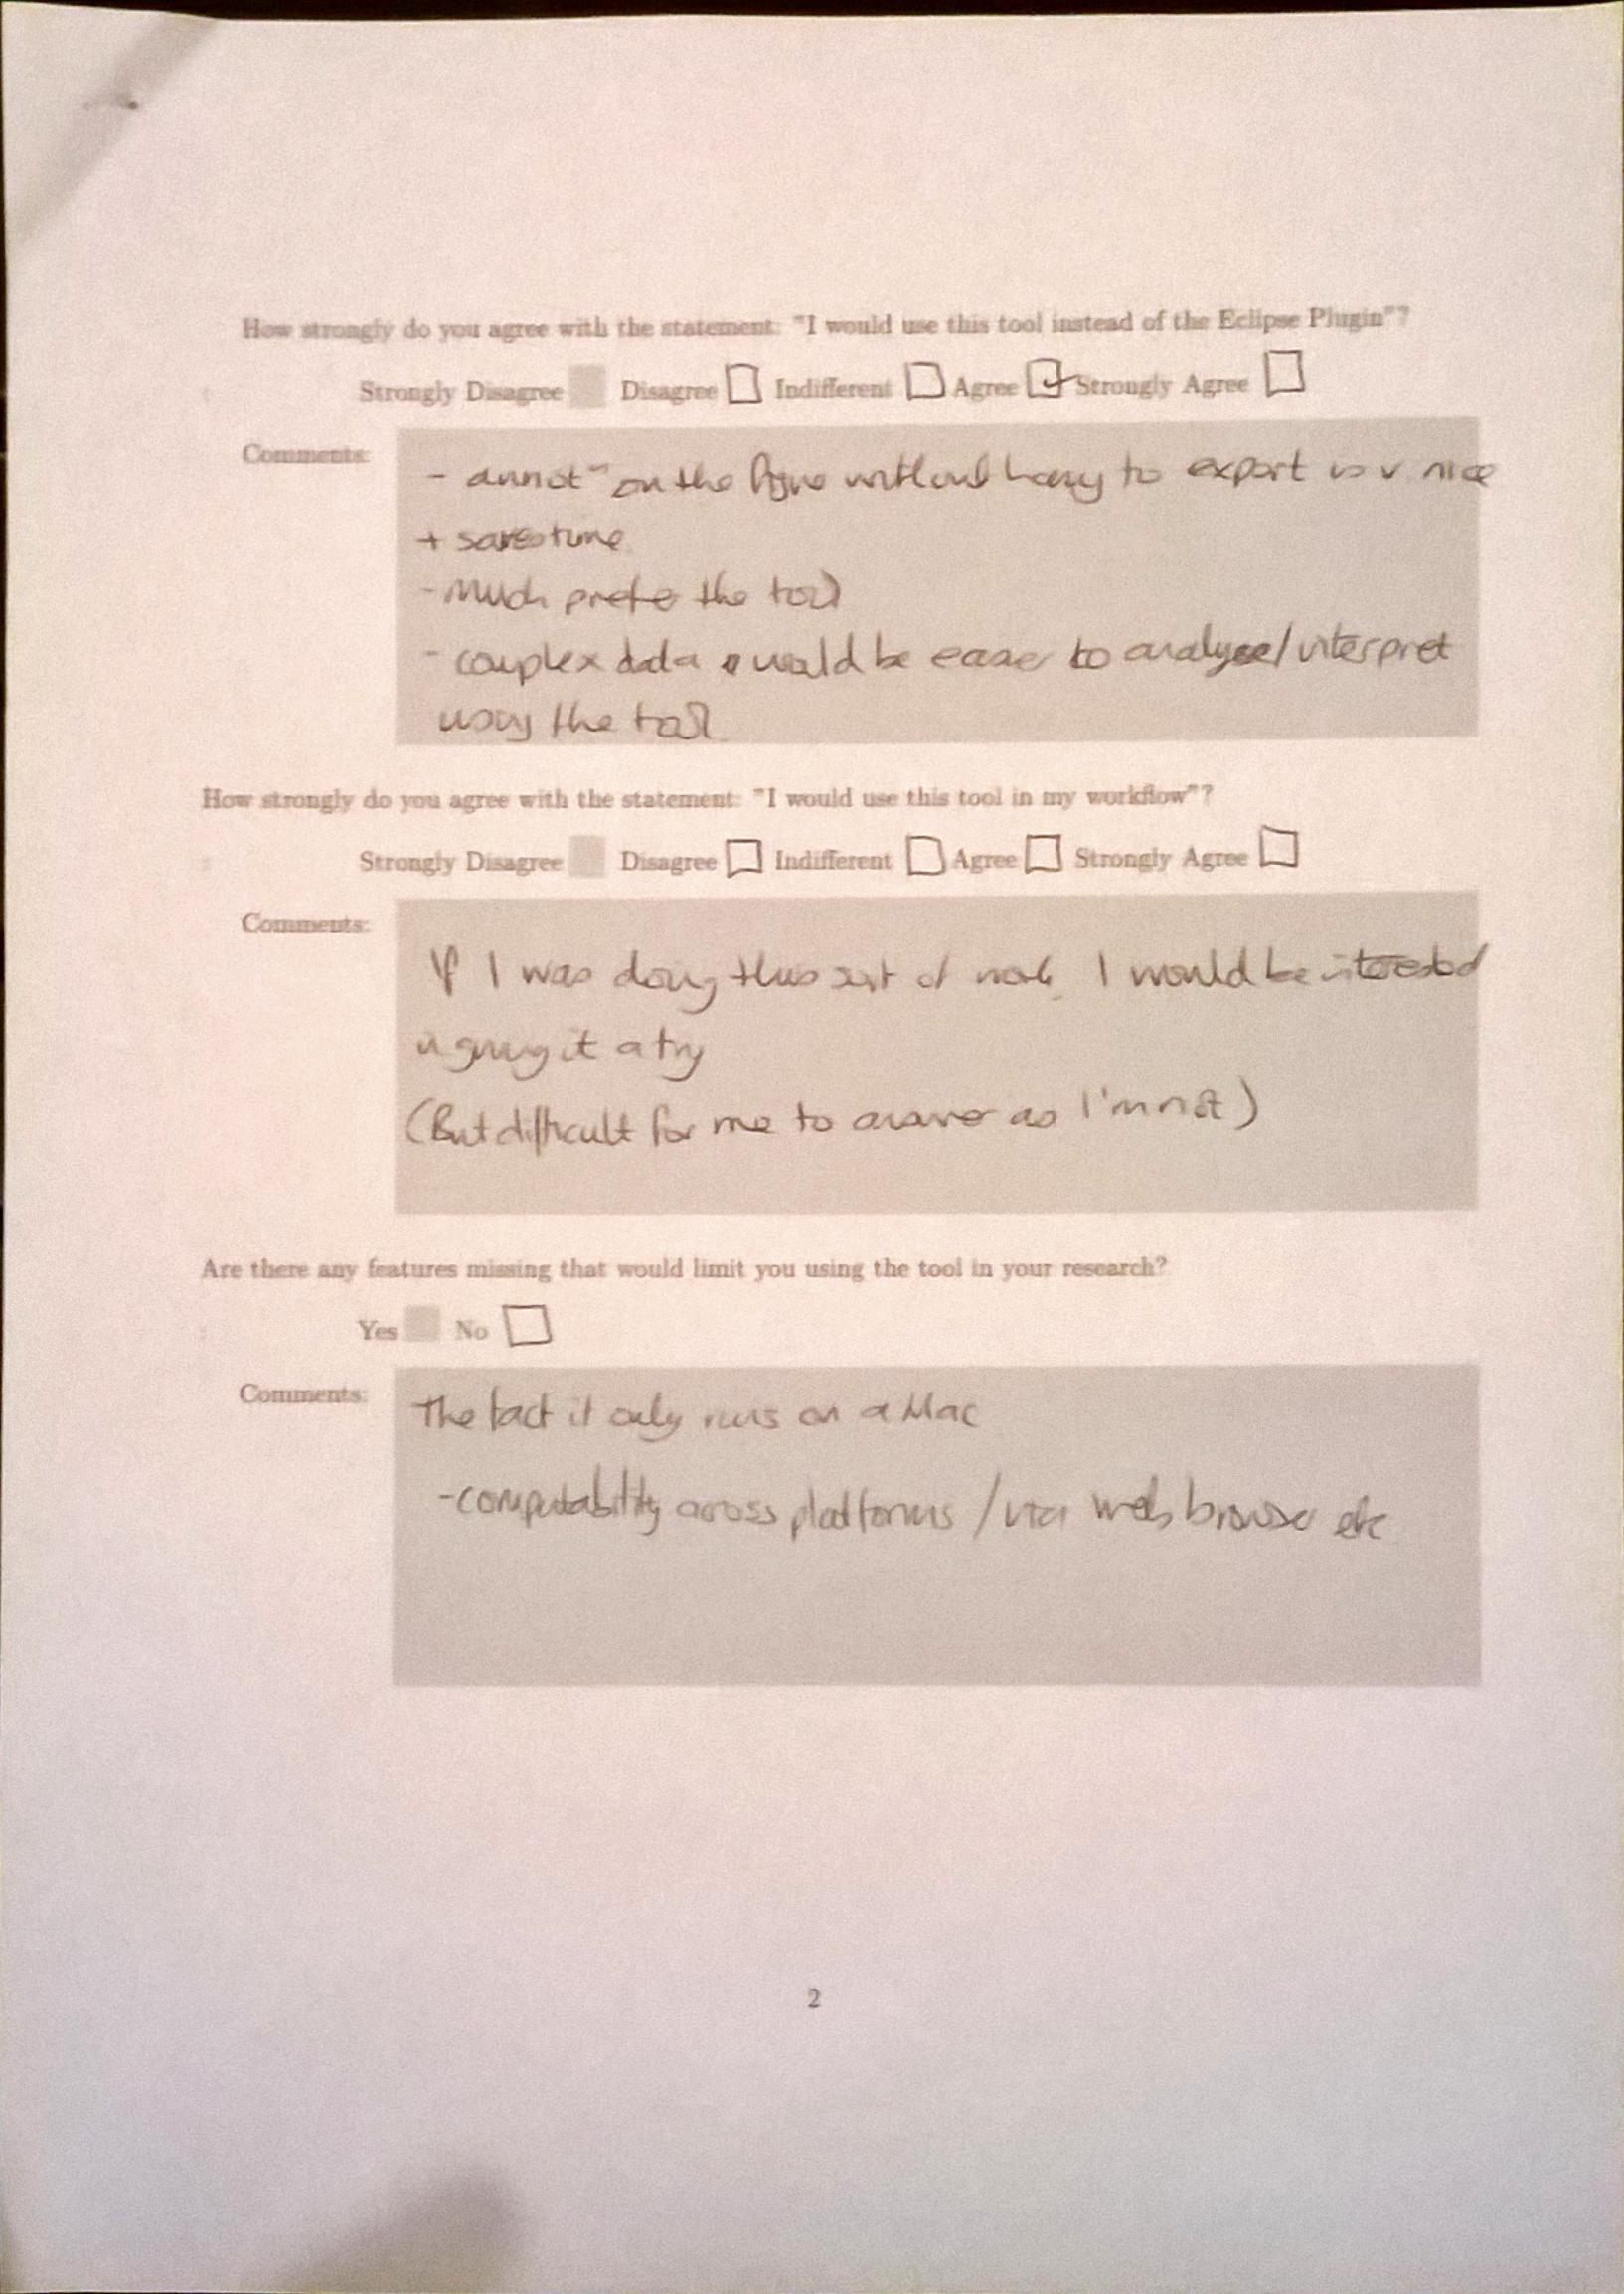 How strongly do you agree with the statement: "I would use this tool instead of the Eclipse Plugin"?
Strongly Disagree Disagree Indifferent Agree Strongly Agree
Comments:
- annotⁿ on the figure without having to export is v nice
+ saves time
- Much prefer the tool
- complex data would be easier to analyse/interpret
using the tool
How strongly do you agree with the statement: "I would use this tool in my workflow"?
Strongly Disagree Disagree Indifferent Agree Strongly Agree
Comments:
If I was doing this sort of work, I would be interested
in giving it a try
(But difficult for me to answer as I'm not)
Are there any features missing that would limit you using the tool in your research?
Yes No
Comments:
The fact it only runs on a Mac
- across platforms / via web browser etc
2